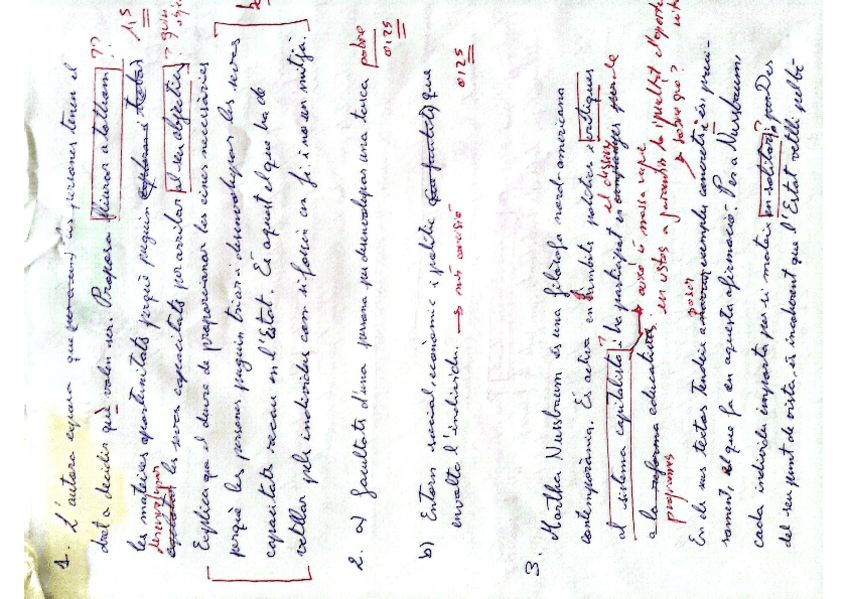 1. L'autora exposa que les persones tenen el
dret a decidir què volen ser. Proposa lliurar a tothom ??
les mateixes oportunitats perquè puguin 1,5
desenvolupar les seves capacitats per arribar al seu objectiu ?
Explica que el deure de proporcionar les eines necessàries
perquè les persones puguin triar i desenvolupar les seves
capacitats recau en l'Estat. És aquest el que ha de
vetllar pels individus com si fossin un fi i no un mitjà.
2. a) Facultats d'una persona per desenvolupar una tasca pobre 0,25
b) Entorn social, econòmic i polític que
envolta l'individu. → més concisió 0,25
3. Martha Nussbaum és una filòsofa nord-americana
contemporània. És activa en àmbits polítics i critiques
al sistema capitalista i ha participat en el disseny de
a la reforma educativa. això és massa vague
programes en vistes a garantir la igualtat d'oportu
sobre què?
En els seus textos tendeix a posar exemples concrets i és preci-
sament el que fa en aquesta afirmació. Per a Nussbaum,
cada individu importa per si mateix en solitari i per Des
del seu punt de vista, és incoherent que l'Estat vetlli pel bé